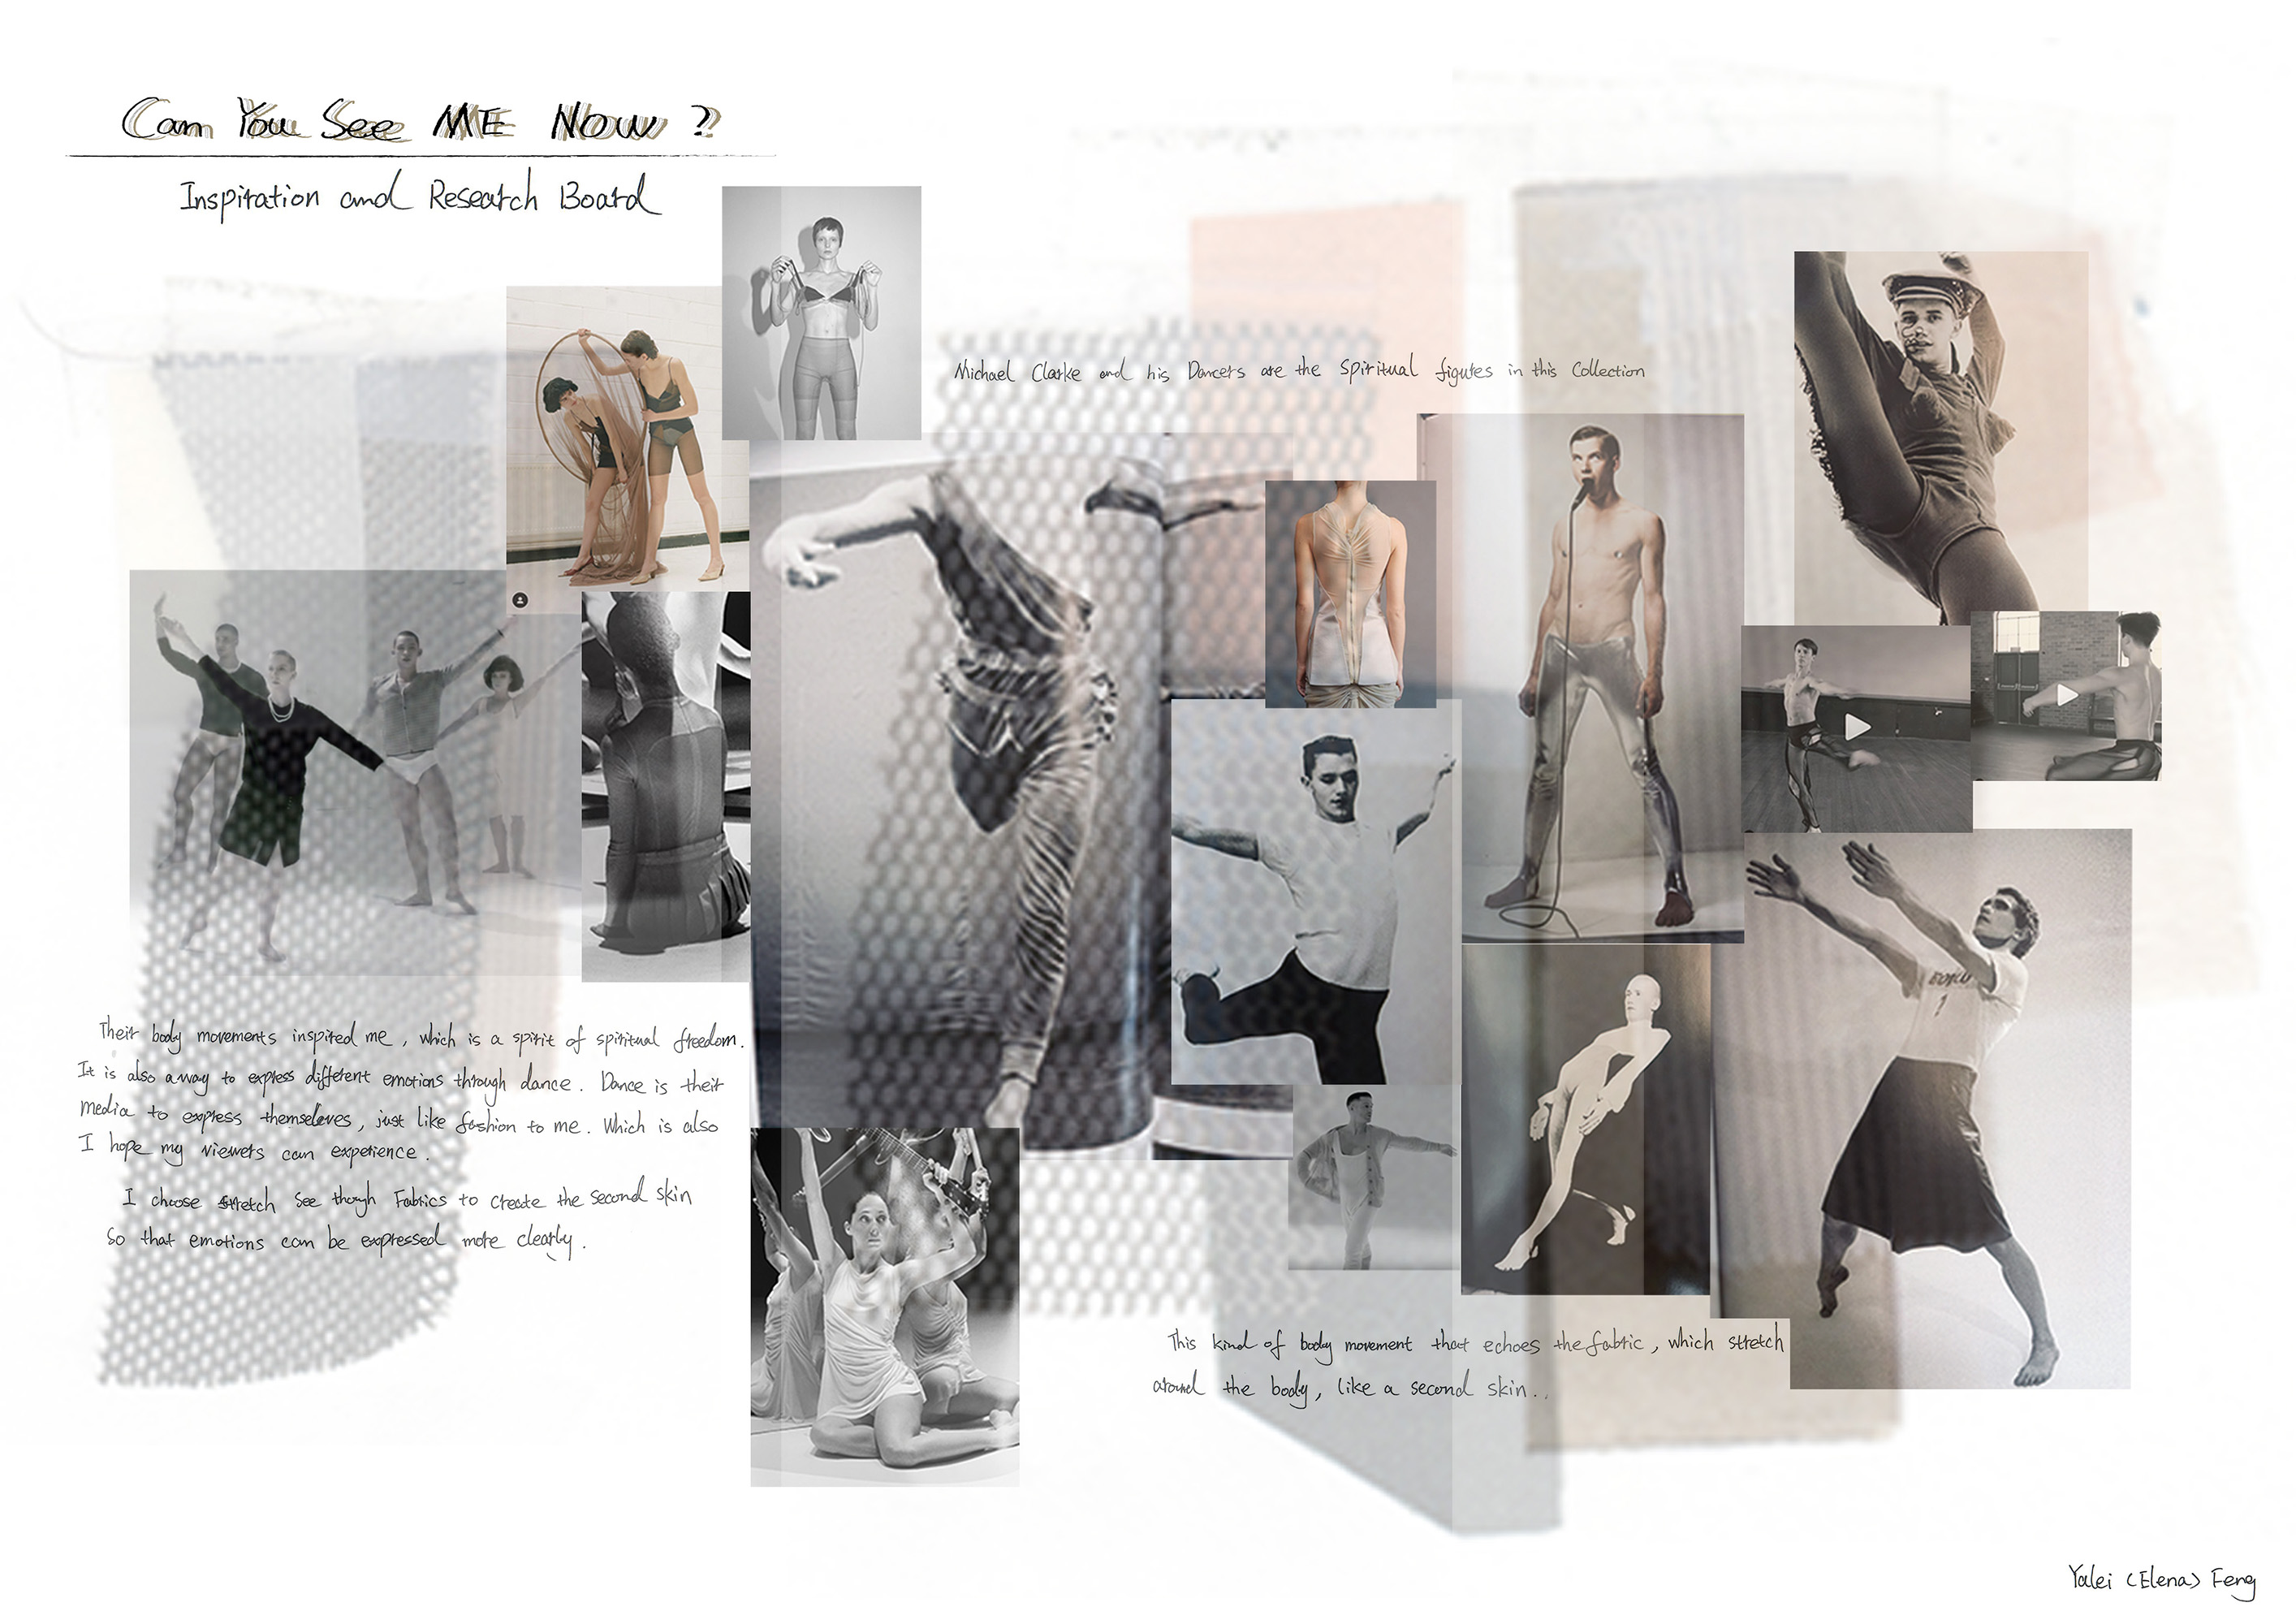 Can You See ME NOW ?
Inspiration and Research Board
Michael Clarke and his Dancers are the Spiritual figures in this Collection
Their body movements inspired me, which is a spirit of spiritual freedom.
It is also away to express different emotions through dance. Dance is their
media to express themseloves, just like fashion to me. Which is also
I hope my viewers can experience.
I choose stretch see though Fabrics to create the second skin
So that emotions can be expressed more clearly.
This kind of body movement that echoes the fabric, which stretch
around the body, like a second skin..
Yalei (Elena) Feng